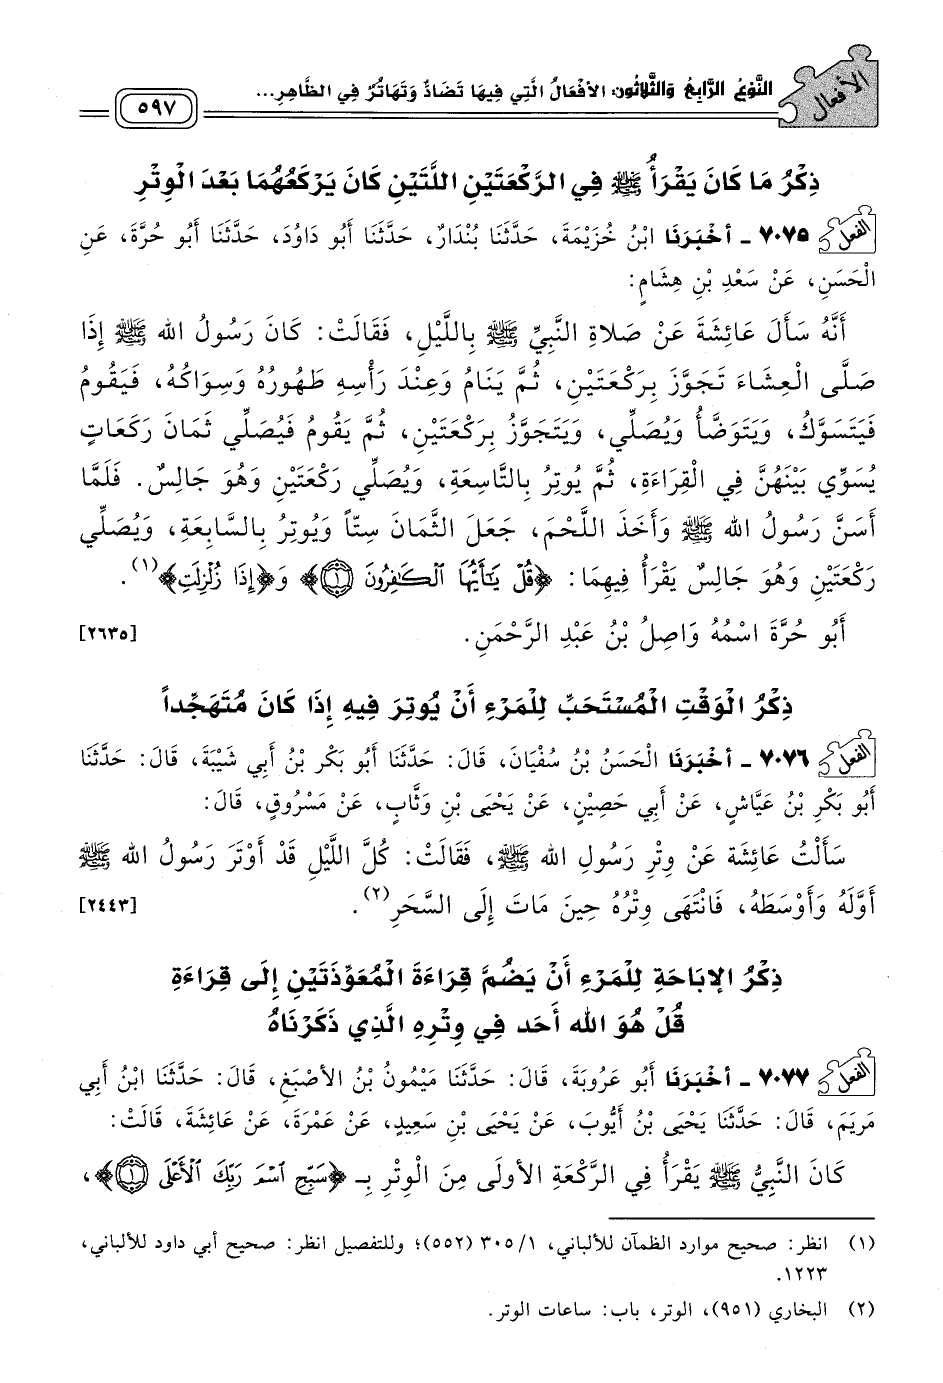 الأفعال
النَّوْعُ الرَّابِعُ وَالثَّلاثُون: الأفْعَالُ الَّتِي فِيهَا تَضَادٌ وَتَهَاتُرٌ فِي الظَّاهِرِ...
٥٩٧
ذِكْرُ مَا كَانَ يَقْرَأُ ﷺ فِي الرَّكْعَتَيْنِ اللَّتَيْنِ كَانَ يَرْكَعُهُمَا بَعْدَ الْوِتْرِ
الفعل ٧٠٧٥ - أخْبَرَنَا ابْنُ خُزَيْمَةَ، حَدَّثَنَا بُنْدَارٌ، حَدَّثَنَا أَبُو دَاوُدَ، حَدَّثَنَا أَبُو حُرَّةَ، عَنِ
الْحَسَنِ، عَنْ سَعْدِ بْنِ هِشَامٍ:
أَنَّهُ سَأَلَ عَائِشَةَ عَنْ صَلاةِ النَّبِيِّ ﷺ بِاللَّيْلِ، فَقَالَتْ: كَانَ رَسُولُ الله ﷺ إِذَا
صَلَّى الْعِشَاءَ تَجَوَّزَ بِرَكْعَتَيْنِ، ثُمَّ يَنَامُ وَعِنْدَ رَأْسِهِ طَهُورُهُ وَسِوَاكُهُ، فَيَقُومُ
فَيَتَسَوَّكُ، وَيَتَوَضَّأُ وَيُصَلِّي، وَيَتَجَوَّزُ بِرَكْعَتَيْنِ، ثُمَّ يَقُومُ فَيُصَلِّي ثَمَانَ رَكَعَاتٍ
يُسَوِّي بَيْنَهُنَّ فِي الْقِرَاءَةِ، ثُمَّ يُوتِرُ بِالتَّاسِعَةِ، وَيُصَلِّي رَكْعَتَيْنِ وَهُوَ جَالِسٌ. فَلَمَّا
أَسَنَّ رَسُولُ الله ﷺ وَأَخَذَ اللَّحْمَ، جَعَلَ الثَّمَانَ سِتّاً وَيُوتِرُ بِالسَّابِعَةِ، وَيُصَلِّي
رَكْعَتَيْنِ وَهُوَ جَالِسٌ يَقْرَأُ فِيهِمَا: ﴿قُلْ يَٰٓأَيُّهَا ٱلْكَٰفِرُونَ ١﴾ وَ﴿إِذَا زُلْزِلَتِ﴾(١).
أَبُو حُرَّةَ اسْمُهُ وَاصِلُ بْنُ عَبْدِ الرَّحْمَنِ. [٢٦٣٥]
ذِكْرُ الْوَقْتِ الْمُسْتَحَبِّ لِلْمَرْءِ أَنْ يُوتِرَ فِيهِ إِذَا كَانَ مُتَهَجِّداً
الفعل ٧٠٧٦ - أخْبَرَنَا الْحَسَنُ بْنُ سُفْيَانَ، قَالَ: حَدَّثَنَا أَبُو بَكْرِ بْنُ أَبِي شَيْبَةَ، قَالَ: حَدَّثَنَا
أَبُو بَكْرِ بْنُ عَيَّاشٍ، عَنْ أَبِي حَصِيْنٍ، عَنْ يَحْيَى بْنِ وَثَّابٍ، عَنْ مَسْرُوقٍ، قَالَ:
سَأَلْتُ عَائِشَة عَنْ وِتْرِ رَسُولِ الله ﷺ، فَقَالَتْ: كُلَّ اللَّيْلِ قَدْ أَوْتَرَ رَسُولُ الله ﷺ
أَوَّلَهُ وَأَوْسَطَهُ، فَانْتَهَى وِتْرُهُ حِينَ مَاتَ إِلَى السَّحَرِ(٢). [٢٤٤٣]
ذِكْرُ الإبَاحَةِ لِلْمَرْءِ أَنْ يَضُمَّ قِرَاءَةَ الْمُعَوِّذَتَيْنِ إِلَى قِرَاءَةِ
قُلْ هُوَ الله أَحَد فِي وِتْرِهِ الَّذِي ذَكَرْنَاهُ
الفعل ٧٠٧٧ - أخْبَرَنَا أَبُو عَرُوبَةَ، قَالَ: حَدَّثَنَا مَيْمُونُ بْنُ الأصْبَغِ، قَالَ: حَدَّثَنَا ابْنُ أَبِي
مَرِيَمَ، قَالَ: حَدَّثَنَا يَحْيَى بْنُ أَيُّوبَ، عَنْ يَحْيَى بْنِ سَعِيدٍ، عَنْ عَمْرَةَ، عَنْ عَائِشَةَ، قَالَتْ:
كَانَ النَّبِيُّ ﷺ يَقْرَأُ فِي الرَّكْعَةِ الأولَى مِنَ الْوِتْرِ بِـ ﴿سَبِّحِ ٱسْمَ رَبِّكَ ٱلْأَعْلَى ١﴾،
(١) انظر: صحيح موارد الظمآن للألباني، ٣٠٥/١ (٥٥٢)؛ وللتفصيل انظر: صحيح أبي داود للألباني،
١٢٢٣.
(٢) البخاري (٩٥١)، الوتر، باب: ساعات الوتر.